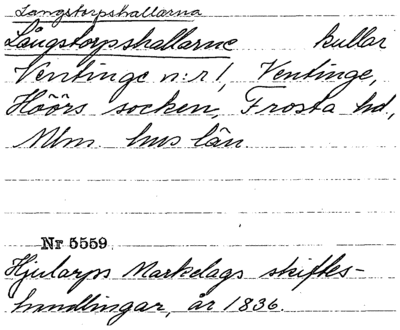 Långstorpshallarna
Långstorpshallarne kullar
Ventinge n:r 1, Ventinge,
Höörs socken, Frosta hd,
Mlm hus län.
Nr 5559
Hjularps Markelags skiftes-
handlingar, år 1836.